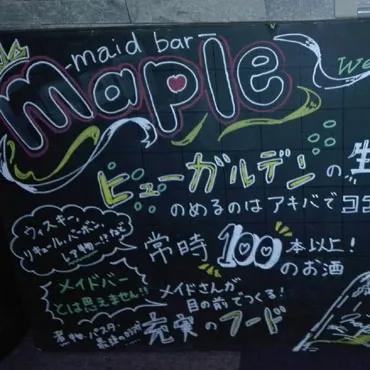 -maid bar-
maple
We
ヒューガルデンの生
のめるのはアキバでココ
ウィスキー、
リキュール、バーボン、
レア物…!?など
常時100本以上!
のお酒
メイドバー
とは思えません!!
メイドさんが
目の前でつくる!
煮物・パスタ・
充実のフード